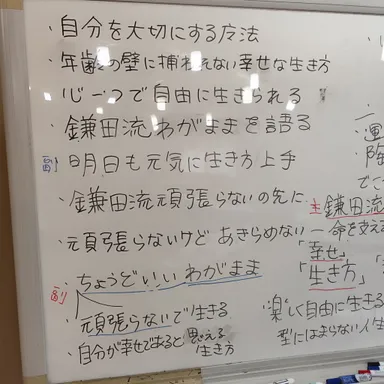 ・自分を大切にする方法
・年齢の壁に捕われない幸せな生き方
・心一つで自由に生きられる
・鎌田流わがままを語る
副 明日も元気に生き方上手
・鎌田流頑張らないの先に
・頑張らないけど あきらめない
副 ・ちょうどいい わがまま
・頑張らないで生きる
・自分が幸せであると思える生き方
主 鎌田流
一 命を支え
「幸せ」
「生き方」
楽しく自由に生きる
型にはまらない人生